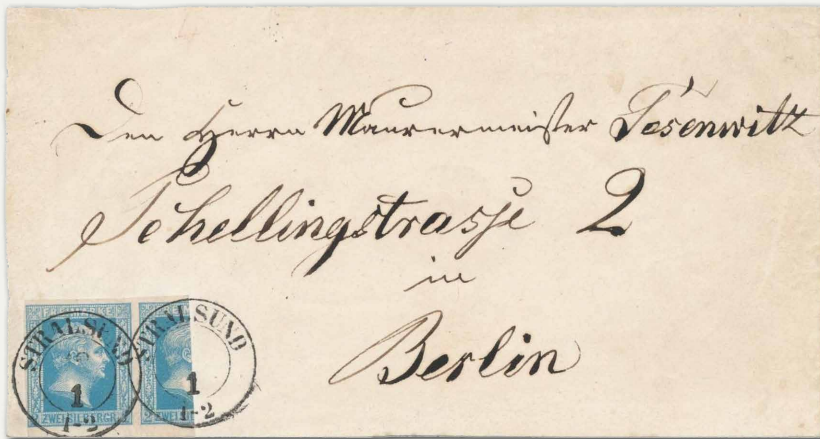 Den Herrn Maurermeister Tesenwitz
Schellingstrasse 2
in
Berlin
STRALSUND
1
1-2
STRALSUND
1
1-2
FREIMARKE
2 ZWEI SILBERGR.
2 ZWEI